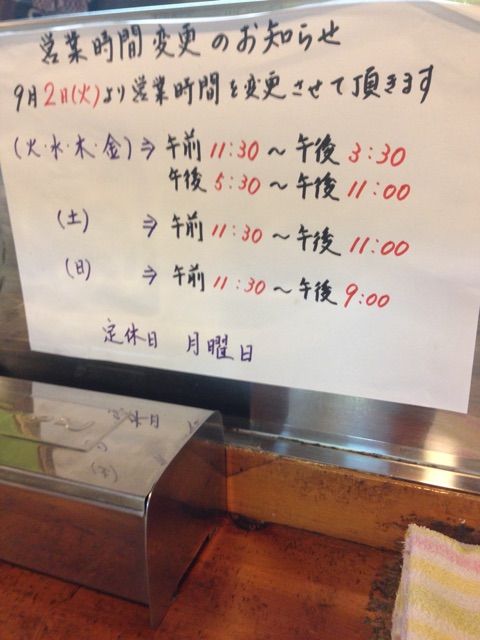 営業時間変更のお知らせ
9月2日(火)より営業時間を変更させて頂きます
(火・水・木・金)⇒ 午前 11:30 ～ 午後 3:30
午後 5:30 ～ 午後 11:00
(土) ⇒ 午前 11:30 ～ 午後 11:00
(日) ⇒ 午前 11:30 ～ 午後 9:00
定休日 月曜日